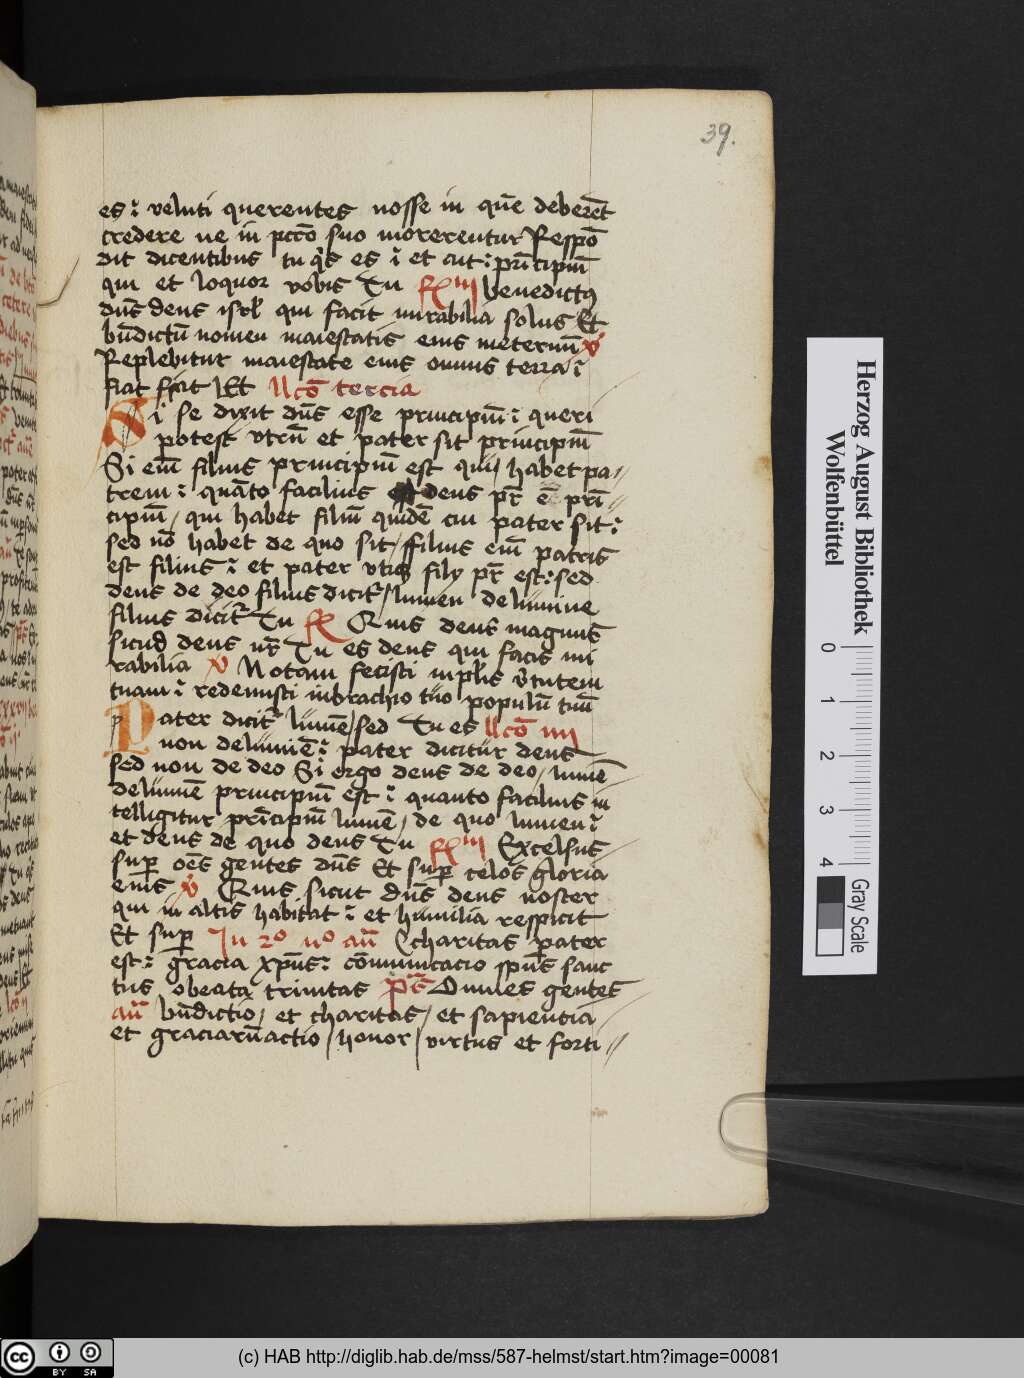 39.
es ⁊ veluti querentes nosse in quē deberēt
credere ne in pctō suo morerentur Respō
dit dicentibus tu qͥs es ⁊ et ait : prīcipiū
qui et loquor vobis Tu R iii benedictꝰ
dn̄s deus isrl̄ qui facit mirabilia solus Et
bn̄dictū nomen maiestatis eius ineternū v̊
Replebitur maiestate eius omnis terra ⁊
fiat fiat Et llcō tercia
Si se dixit dn̄s esse principiū ⁊ queri
potest vtrū et pater sit principiū
Si eīm filius principiū est qui habet pa
trem ⁊ quāto facilius deus pr̄ ē prī
cipiū / qui habet filiū quidē cui pater sit ⁊
sed nō habet de quo sit / ffilius eīm patris
est filius ⁊ et pater vtiqꝫ filij pr̄ est : sed
deus de deo filius dicit᷑ / lumen de lumine
filius dicit᷑ Tu R Quis deus magnus
sicud deus nr̄ Tu es deus qui facis mi
rabilia v̊ Notam fecisti inplīs v̊tutem
tuam ⁊ redemisti inbrachio tuo populū tuū
Pater dicit᷑ lumē / sed Tu es llcō iiii
non de lumīe ⁊ pater dicitur deus
sed non de deo Si ergo deus de deo / lumē
de lumīe principiū est ⁊ quanto facilius in
telligitur prīcipiū lumē / de quo lumen ⁊
et deus de quo deus Tu R iii Excelsus
suꝑ oēs gentes dn̄s Et suꝑ celos gloria
eius v̊ Quis sicut dn̄s deus noster
qui in altis habitat ⁊ et humilia respicit
Et suꝑ In 2º nº an̄ Ccharitas pater
est : gracia xp̄us : cōmunicacio spūs sanc
tus obeata trinitas ps̄ Omnes gentes
an̄ bn̄dictio / et charitas / et sapiencia
et graciarūactio / honor / virtus et forti
Herzog August Bibliothek
Wolfenbüttel
0 1 2 3 4
Gray Scale
cc BY SA
(c) HAB http://diglib.hab.de/mss/587-helmst/start.htm?image=00081